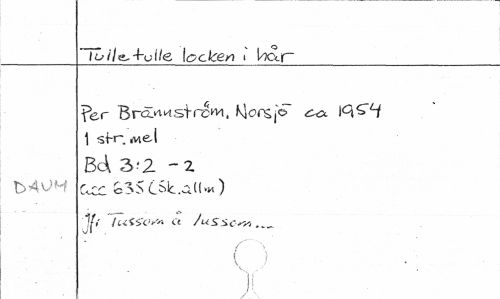 Tulle tulle locken i hår
Per Brännström, Norsjö ca 1954
1 str. mel
Bd 3:2 - 2
DAUM acc 635 (Sk.allm)
Jfr Tussom å lussom...